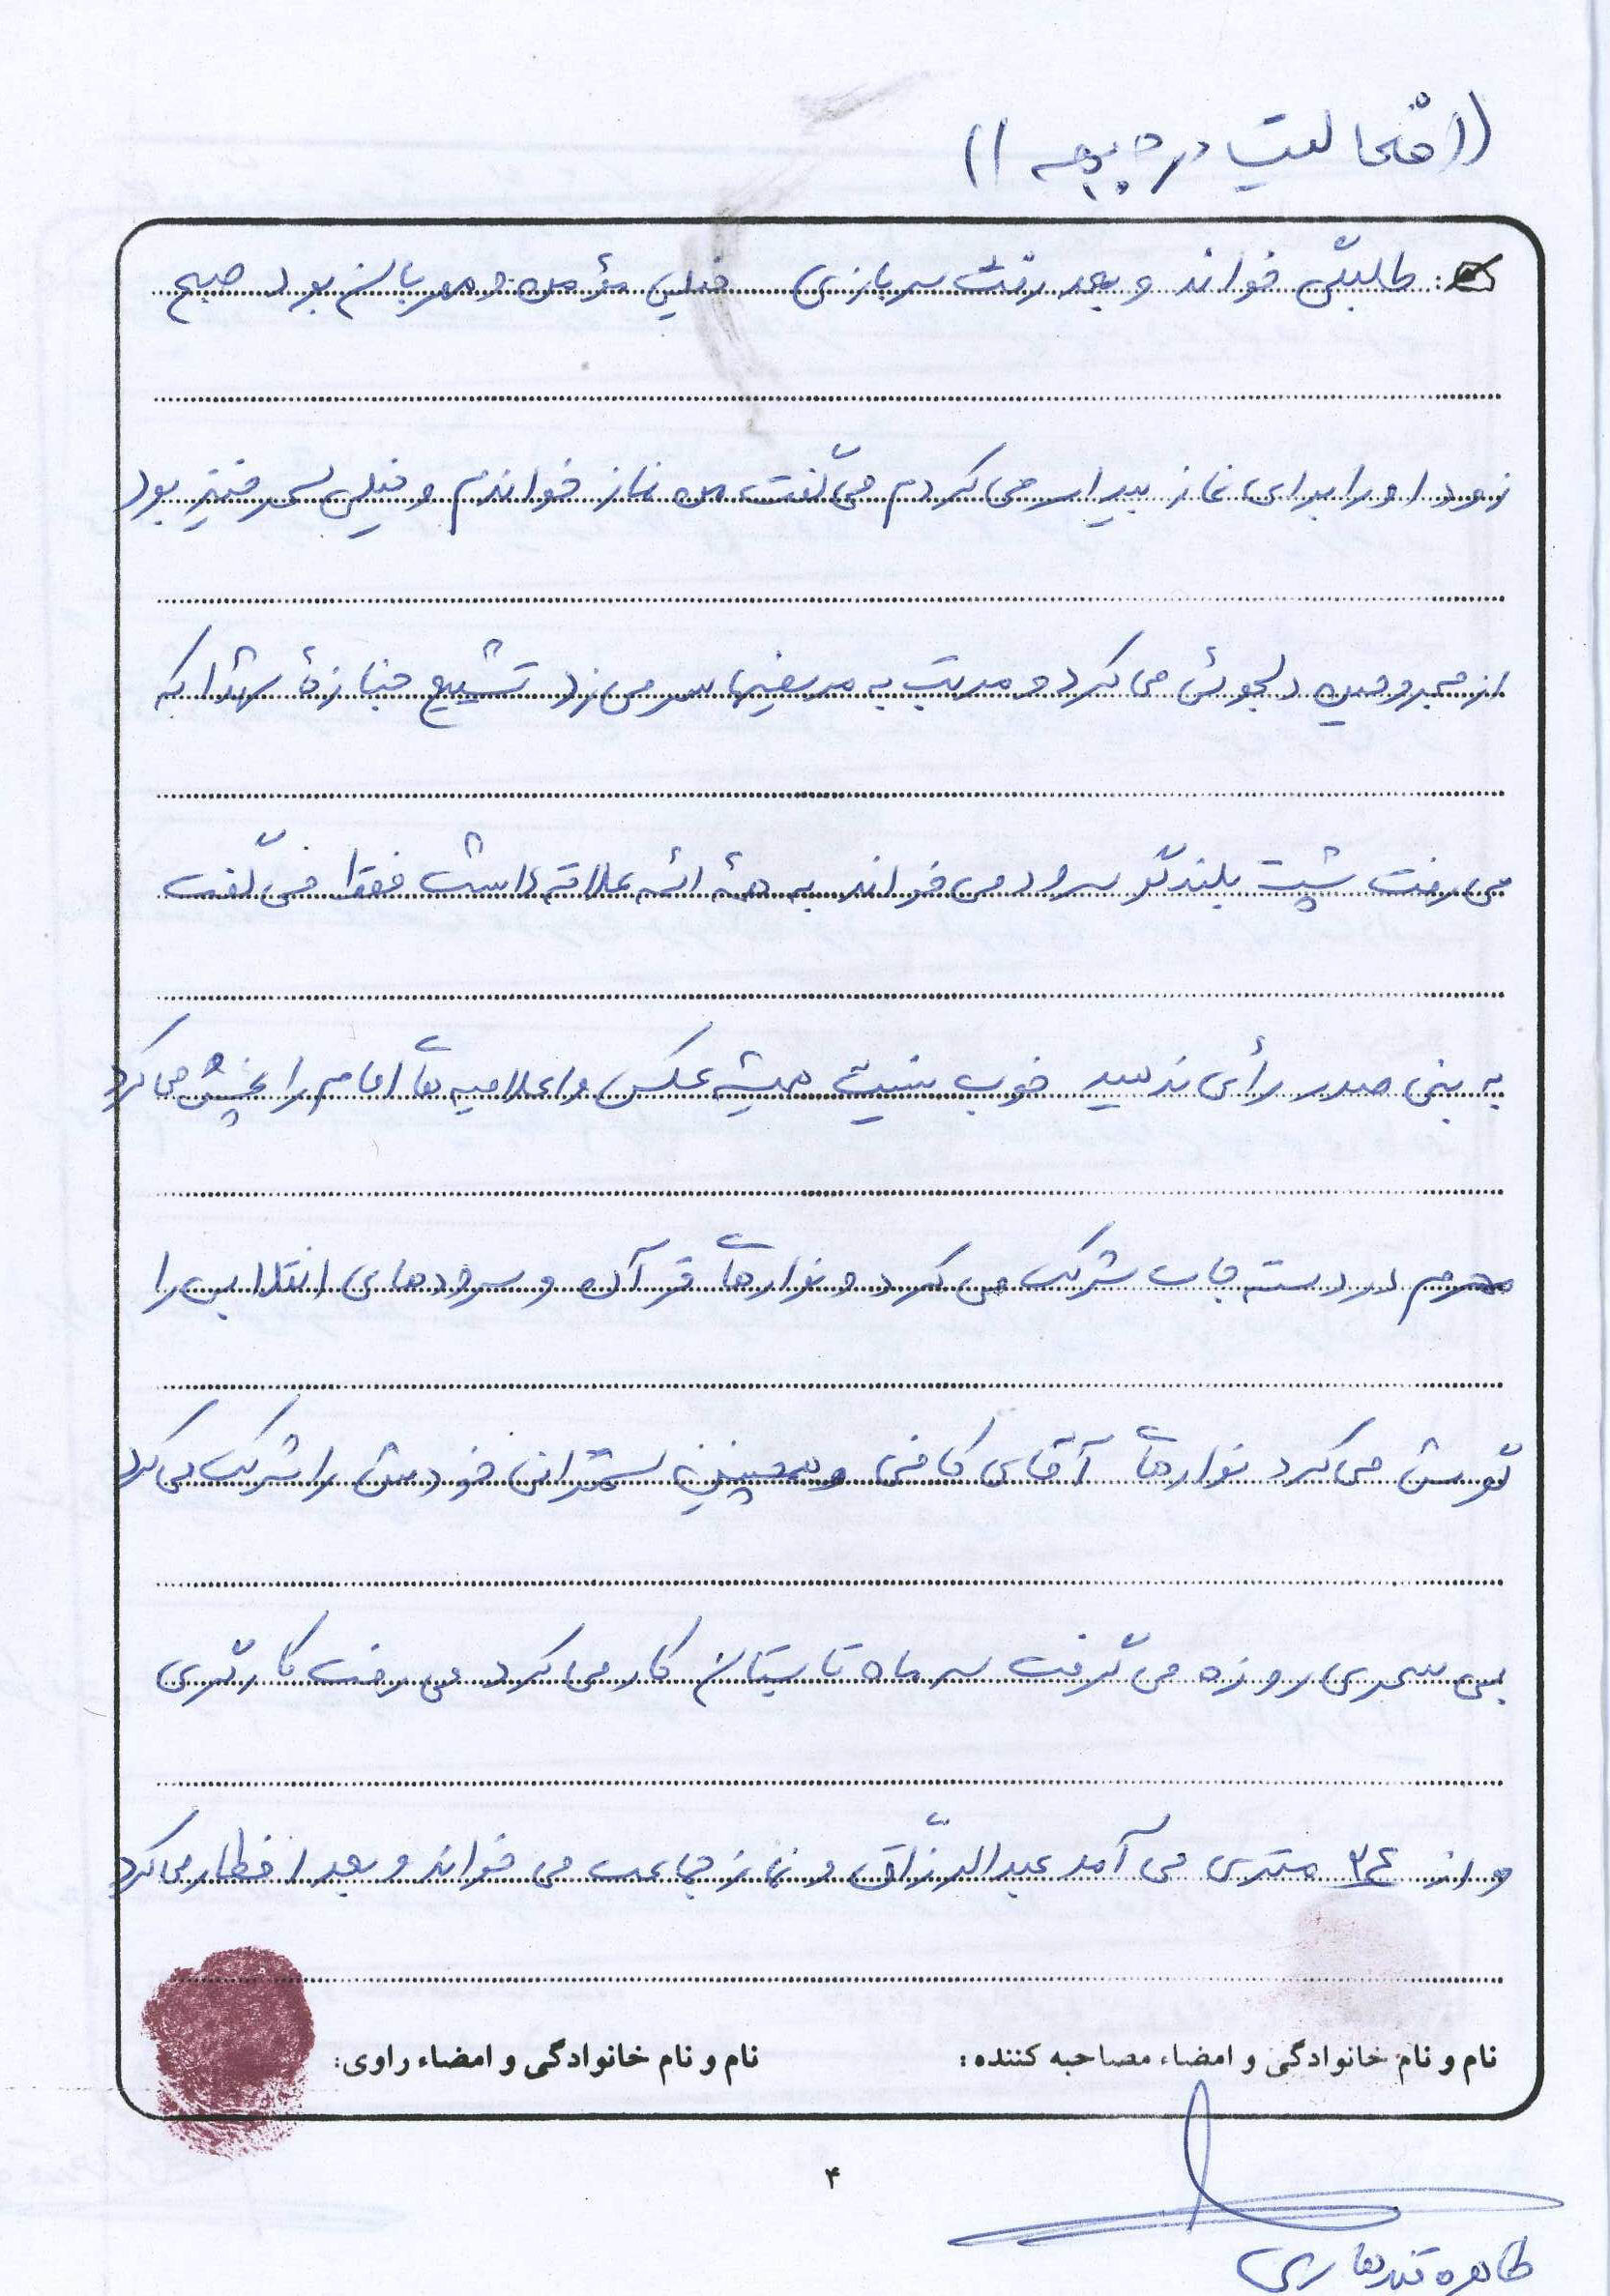 ((فعالیت در جبهه))
: طلبگی خواند و بعد رفت سربازی خیلی مؤمن و مهربان بود صبح
زود او را برای نماز بیدار می کردم می گفت من نماز خواندم و خیلی سحرخیز بود
از مجروحین دلجوئی می کرد و مرتب به مریضها سر می زد تشییع جنازهٔ شهدا که
می رفت پشت بلندگو سرود می خواند به همهٔ ائمه علاقه داشت فقط می گفت
به بنی صدر رأی ندهید خوب نیست همیشه عکس و اعلامیه های امام را پخش می کرد
محرم در دسته جات شرکت می کرد و نوارهای قرآن و سرودهای انقلابی را
گوش می کرد نوارهای آقای کافی و همچنین سخنرانی خودش را شرکت می کرد
بی سحری روزه می گرفت سر ماه تابستان کار می کرد می رفت کارگری
و از ۳۴ متری می آمد عبدالرزّاق و نماز جماعت می خواند و بعد افطار می کرد
نام و نام خانوادگی و امضاء مصاحبه کننده: نام و نام خانوادگی و امضاء راوی:
۴
طاهره قندهاری